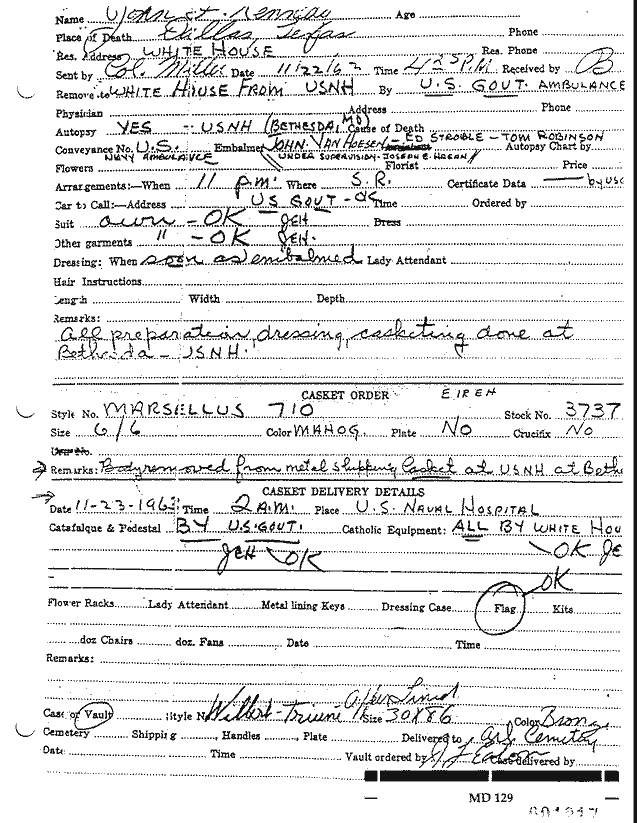 Name John F. Kennedy Age
Place of Death Dallas, Texas Phone
Res. Address WHITE HOUSE Res. Phone
Sent by Col. Miller Date 11/22/63 Time 4:25 P.M. Received by B
Remove to WHITE HOUSE FROM USNH By U.S. GOVT. AMBULANCE
Physician Address Phone
Autopsy YES - USNH (BETHESDA, MD) Cause of Death
Conveyance No. U.S. Embalmer JOHN VAN HOESEN - ED STROBLE - TOM ROBINSON Autopsy Chart by
NAVY AMBULANCE UNDER SUPERVISION - JOSEPH E. HAGAN
Flowers Florist Price
Arrangements:—When 11 P.M. Where S.R. Certificate Data by USG
Car to Call:—Address US GOVT - OK Time Ordered by
Suit own - OK JEH Press
Other garments " - OK JEH.
Dressing: When soon as embalmed Lady Attendant
Hair Instructions
Length Width Depth
Remarks:
All preparation, dressing, casketing done at
Bethesda - USNH.
CASKET ORDER
Style No. MARSELLUS 710 Stock No. 3737
Size 6/6 Color MAHOG. Plate No Crucifix No
Remarks: Body removed from metal shipping Casket at USNH at Beth
CASKET DELIVERY DETAILS
Date 11-23-1963 Time 2 A.M. Place U.S. NAVAL HOSPITAL
Catafalque & Pedestal BY U.S. GOVT. Catholic Equipment: ALL BY WHITE HOU
JEH OK OK JE
OK
Flower Racks Lady Attendant Metal lining Keys Dressing Case Flag Kits
doz Chairs doz. Fans Date Time
Remarks:
Case or Vault Style No Wilbert-Triune Size 30X86 Color Bronz
Cemetery Shipping Handles Plate Delivered to Arl. Cemetery
Date Time Vault ordered by Case delivered by
MD 129